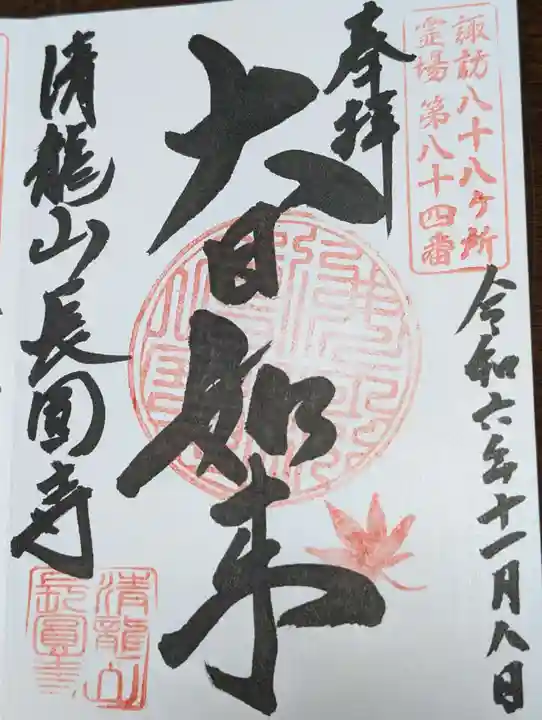 諏訪八十八ヶ所
霊場 第八十四番
令和六年十一月八日
奉拝
大日如来
清龍山長圓寺
清龍山
長圓寺